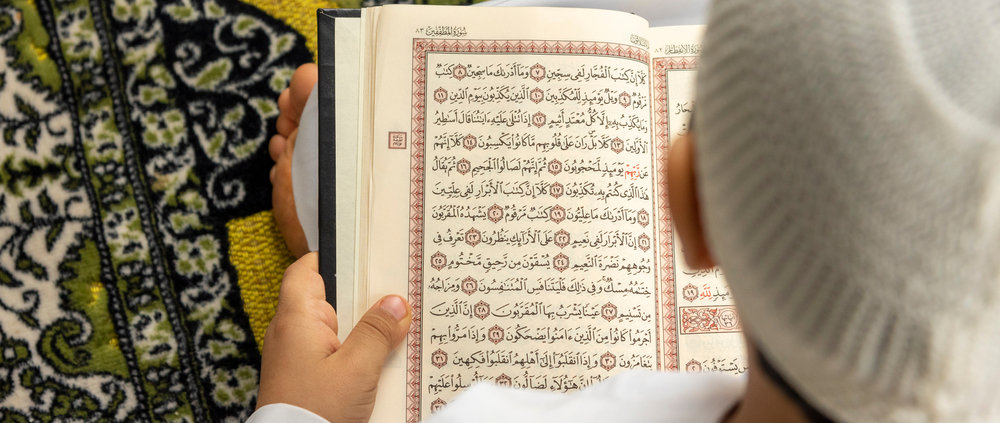 سُورَةُ الانفِطَارِ ٨٢
لِّلَّهِ ١٩
سُورَةُ المُطَفِّفِينَ ٨٣
كَلَّآ إِنَّ كِتَٰبَ ٱلْفُجَّارِ لَفِى سِجِّينٍ ٧ وَمَآ أَدْرَىٰكَ مَا سِجِّينٌ ٨ كِتَٰبٌ
مَّرْقُومٌ ٩ وَيْلٌ يَوْمَئِذٍ لِّلْمُكَذِّبِينَ ١٠ ٱلَّذِينَ يُكَذِّبُونَ بِيَوْمِ ٱلدِّينِ ١١
وَمَا يُكَذِّبُ بِهِۦٓ إِلَّا كُلُّ مُعْتَدٍ أَثِيمٍ ١٢ إِذَا تُتْلَىٰ عَلَيْهِ ءَايَٰتُنَا قَالَ أَسَٰطِيرُ
ٱلْأَوَّلِينَ ١٣ كَلَّا بَلْ رَانَ عَلَىٰ قُلُوبِهِم مَّا كَانُوا۟ يَكْسِبُونَ ١٤ كَلَّآ إِنَّهُمْ
عَن رَّبِّهِمْ يَوْمَئِذٍ لَّمَحْجُوبُونَ ١٥ ثُمَّ إِنَّهُمْ لَصَالُوا۟ ٱلْجَحِيمِ ١٦ ثُمَّ يُقَالُ
هَٰذَا ٱلَّذِى كُنتُم بِهِۦ تُكَذِّبُونَ ١٧ كَلَّآ إِنَّ كِتَٰبَ ٱلْأَبْرَارِ لَفِى عِلِّيِّينَ
١٨ وَمَآ أَدْرَىٰكَ مَا عِلِّيُّونَ ١٩ كِتَٰبٌ مَّرْقُومٌ ٢٠ يَشْهَدُهُ ٱلْمُقَرَّبُونَ
٢١ إِنَّ ٱلْأَبْرَارَ لَفِى نَعِيمٍ ٢٢ عَلَى ٱلْأَرَآئِكِ يَنظُرُونَ ٢٣ تَعْرِفُ فِى
وُجُوهِهِمْ نَضْرَةَ ٱلنَّعِيمِ ٢٤ يُسْقَوْنَ مِن رَّحِيقٍ مَّخْتُومٍ ٢٥
خِتَٰمُهُۥ مِسْكٌ وَفِى ذَٰلِكَ فَلْيَتَنَافَسِ ٱلْمُتَنَٰفِسُونَ ٢٦ وَمِزَاجُهُۥ
مِن تَسْنِيمٍ ٢٧ عَيْنًا يَشْرَبُ بِهَا ٱلْمُقَرَّبُونَ ٢٨ إِنَّ ٱلَّذِينَ
أَجْرَمُوا۟ كَانُوا۟ مِنَ ٱلَّذِينَ ءَامَنُوا۟ يَضْحَكُونَ ٢٩ وَإِذَا مَرُّوا۟ بِهِمْ
يَتَغَامَزُونَ ٣٠ وَإِذَا ٱنقَلَبُوٓا۟ إِلَىٰٓ أَهْلِهِمُ ٱنقَلَبُوا۟ فَكِهِينَ ٣١
هَٰٓؤُلَآءِ لَضَآلُّونَ ٣٢ أُرْسِلُوا۟ عَلَيْهِمْ